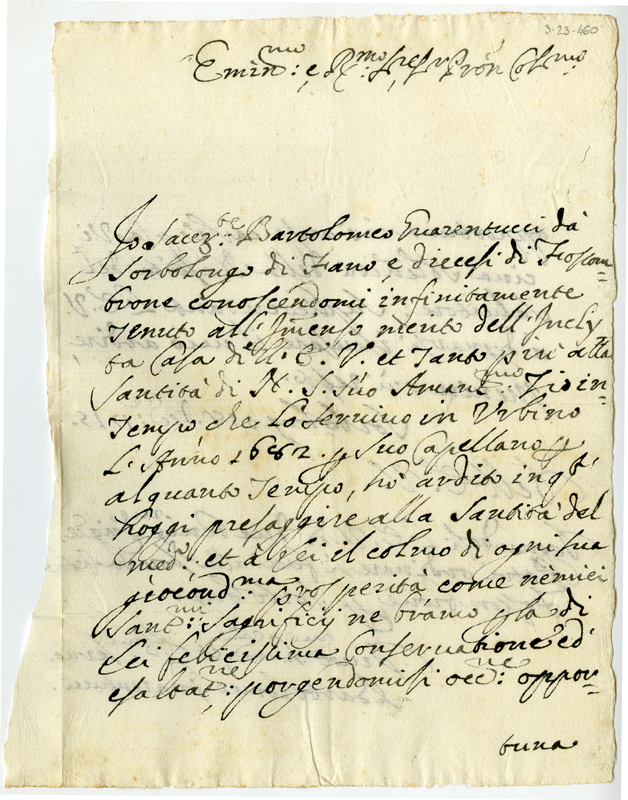 3-23-460
Emin:mo e Rmo Sre Sre Pron Colmo:
Io Sacer:te Bartolomeo Guarentucci da
Sorbolongo di Fano, e diecesi di Fossom=
brone conoscendomi infinitamente
tenuto all'Imenso merito dell'Incly
ta Casa dell' E. V. et tanto più alla
Santità di N. S. suo Amant:mo Zio in
tempo che lo servivo in Urbino
L'Anno 1682. p suo Capellano p
alquanto tempo, hò ardito in qsti
hoggi presaggire alla Santità del
med:o et à Lei il colmo di ogni sua
giocond:ma prosperità come ne miei
Sant:mi Sagrificij ne bramo p la di
Lei felicissima Conservatione ed
esaltat:ne porgendomisi occ:ne oppor=
tuna